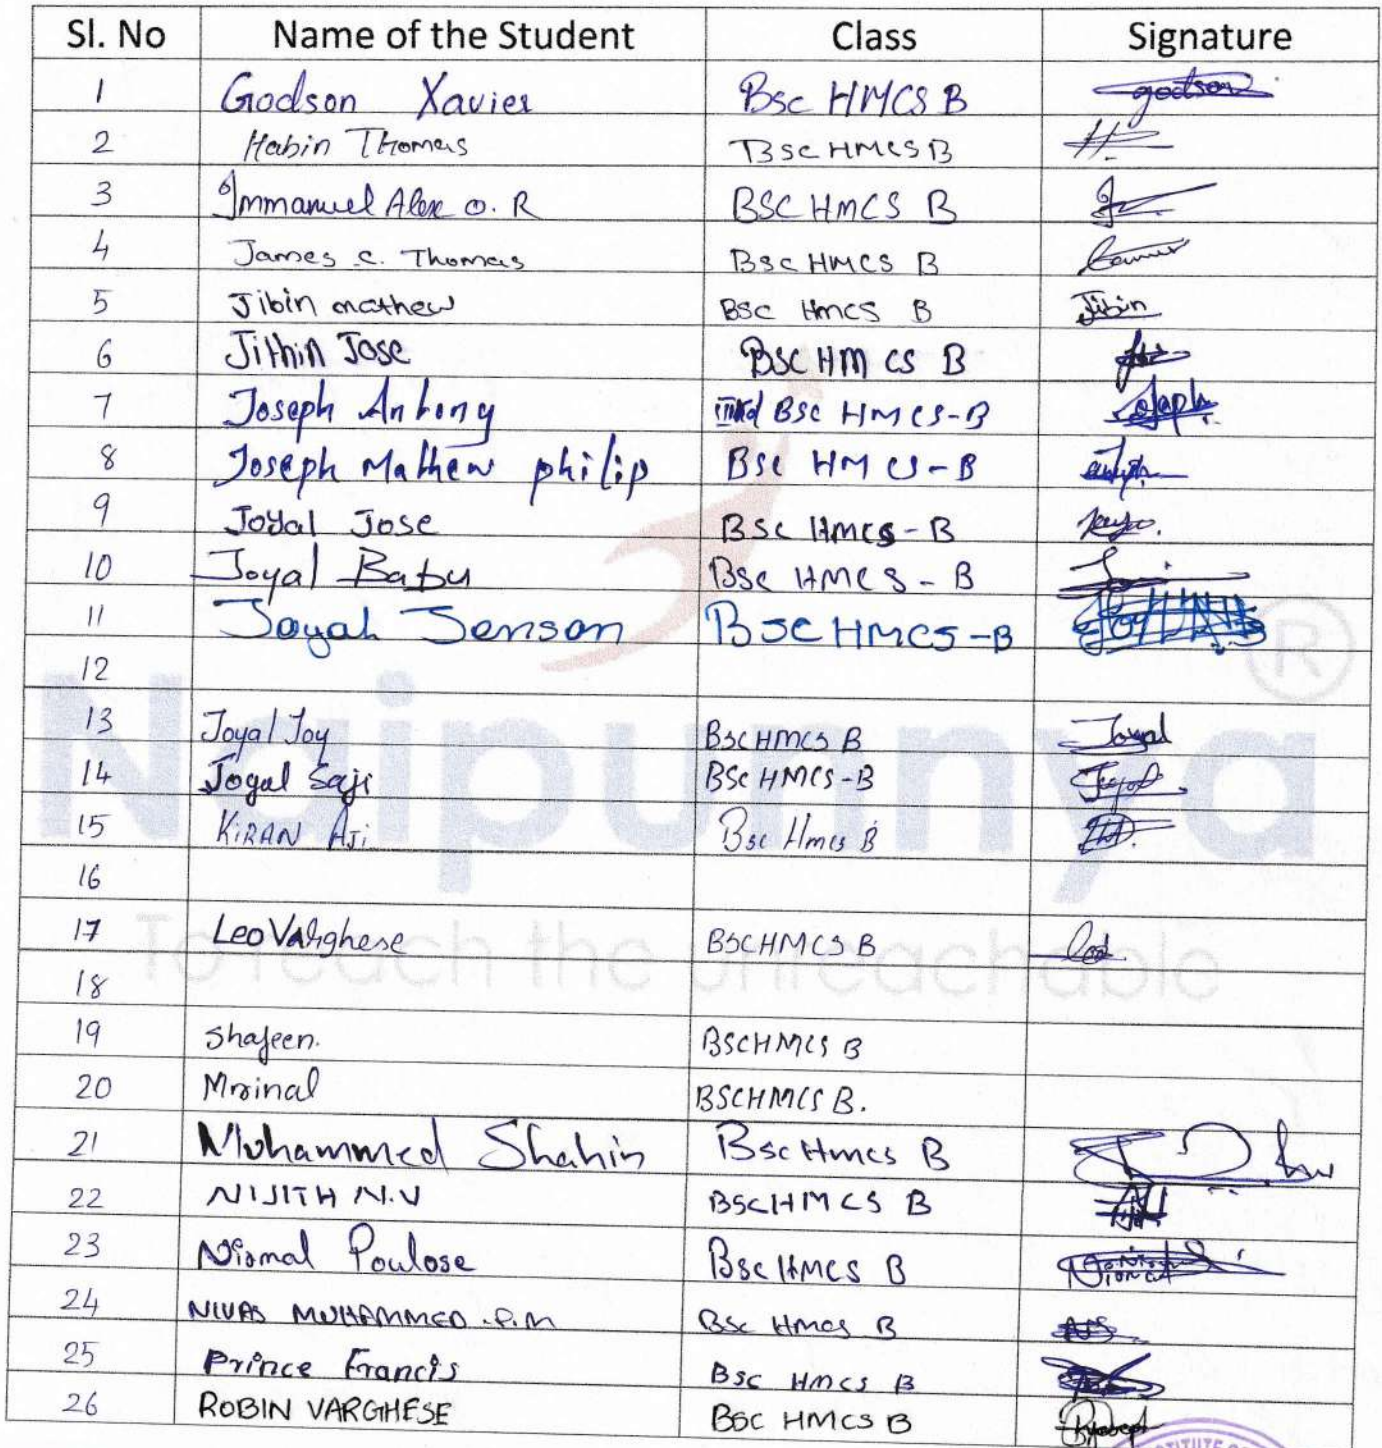 Sl. No Name of the Student Class Signature
1 Godson Xavier Bsc HMCS B godson
2 Habin Thomas BSC HMCS B H.
3 Immanuel Alex O. R BSC HMCS B
4 James C. Thomas BSC HMCS B
5 Jibin mathew BSC HMCS B Jibin
6 Jithin Jose BSC HM CS B
7 Joseph Antony IIIrd BSC HMCS-B Joseph
8 Joseph Mathew philip BSC HM CS-B
9 Joyal Jose BSC HMCS-B
10 Joyal Babu BSC HMCS-B
11 Joyal Jenson BSC HMCS-B
12
13 Joyal Joy BSC HMCS B Joyal
14 Joyal Saji BSC HMCS-B Joyal
15 KIRAN Aji Bsc Hmcs B
16
17 Leo Varghese BSCHMCS B Leo
18
19 Shafeen. BSCHMCS B
20 Mrinal BSCHMCS B.
21 Muhammed Shahin Bsc Hmcs B
22 NIJITH N.V BSCHMCS B
23 Nirmal Poulose Bsc HMCS B Nirmal
24 NIVAS MUHAMMED .P.M BSC HMCS B
25 Prince Francis BSC HMCS B
26 ROBIN VARGHESE BSC HMCS B
Naipunnya ®
To reach the unreachable